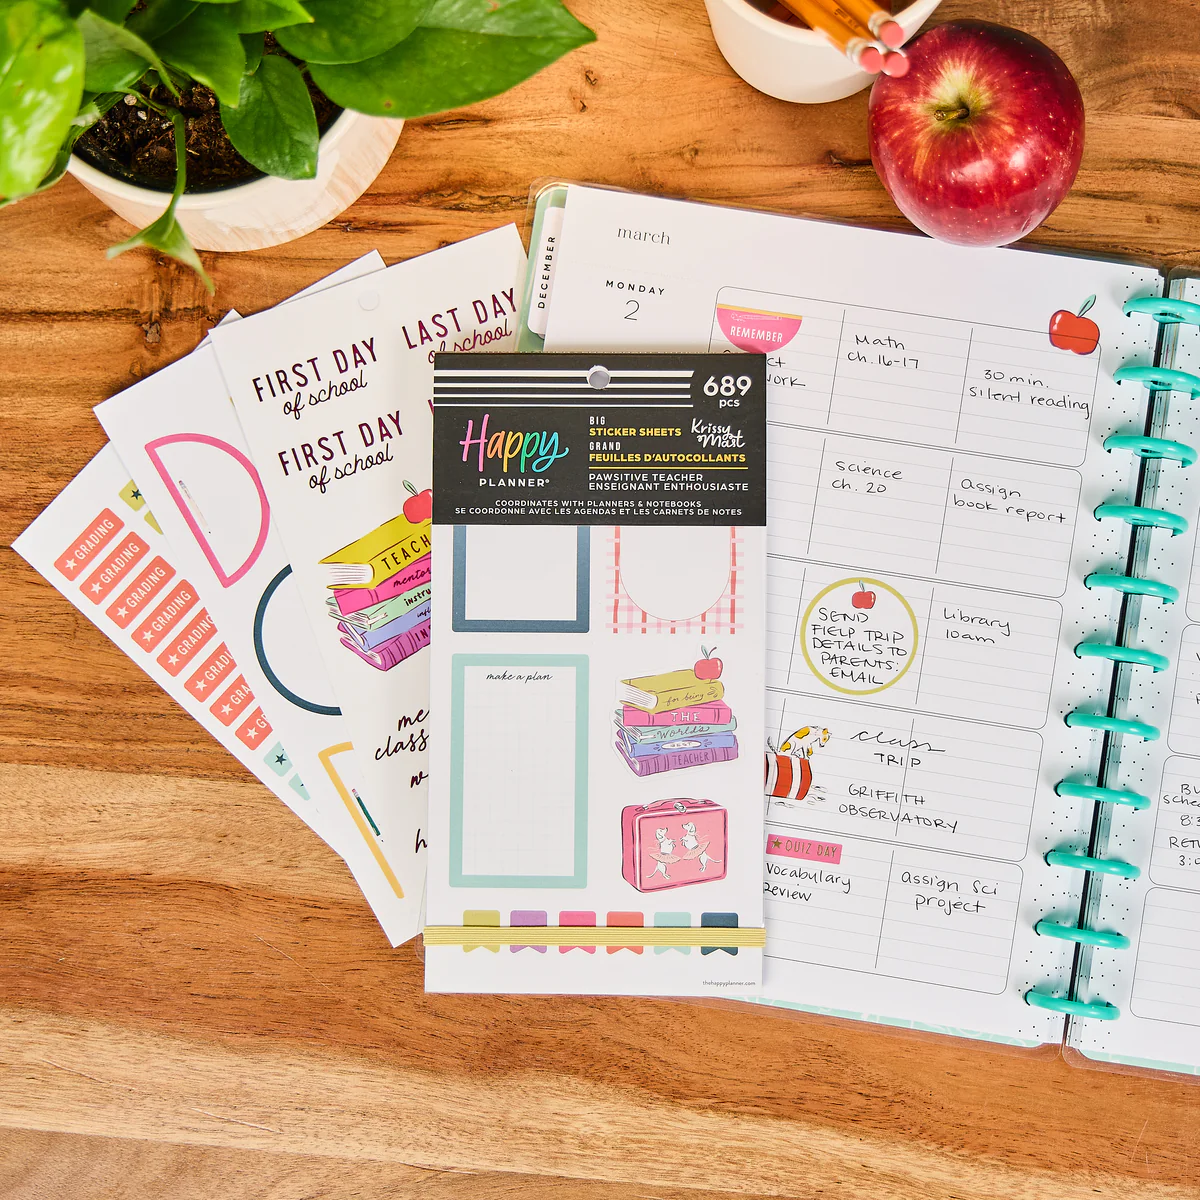 march
MONDAY
2
DECEMBER
REMEMBER
Math
ch. 16-17
30 min.
silent reading
science
ch. 20
assign
book report
SEND
FIELD TRIP
DETAILS TO
PARENTS:
EMAIL
Library
10am
class
TRIP
GRIFFITH
OBSERVATORY
★ QUIZ DAY
Vocabulary
Review
assign sci
project
FIRST DAY
of school
LAST DAY
of school
FIRST DAY
of school
TEACH
mentor
instru
me
class
w
h
★ GRADING
★ GRADING
★ GRADING
★ GRADING
★ GRADING
★ GRADI
★ GRA
★ GR
689
pcs
Happy
PLANNER®
BIG
STICKER SHEETS
GRAND
FEUILLES D'AUTOCOLLANTS
Krissy
Mast
PAWSITIVE TEACHER
ENSEIGNANT ENTHOUSIASTE
COORDINATES WITH PLANNERS & NOTEBOOKS
SE COORDONNE AVEC LES AGENDAS ET LES CARNETS DE NOTES
make a plan
for being
THE
World's
BEST
TEACHER
thehappyplanner.com